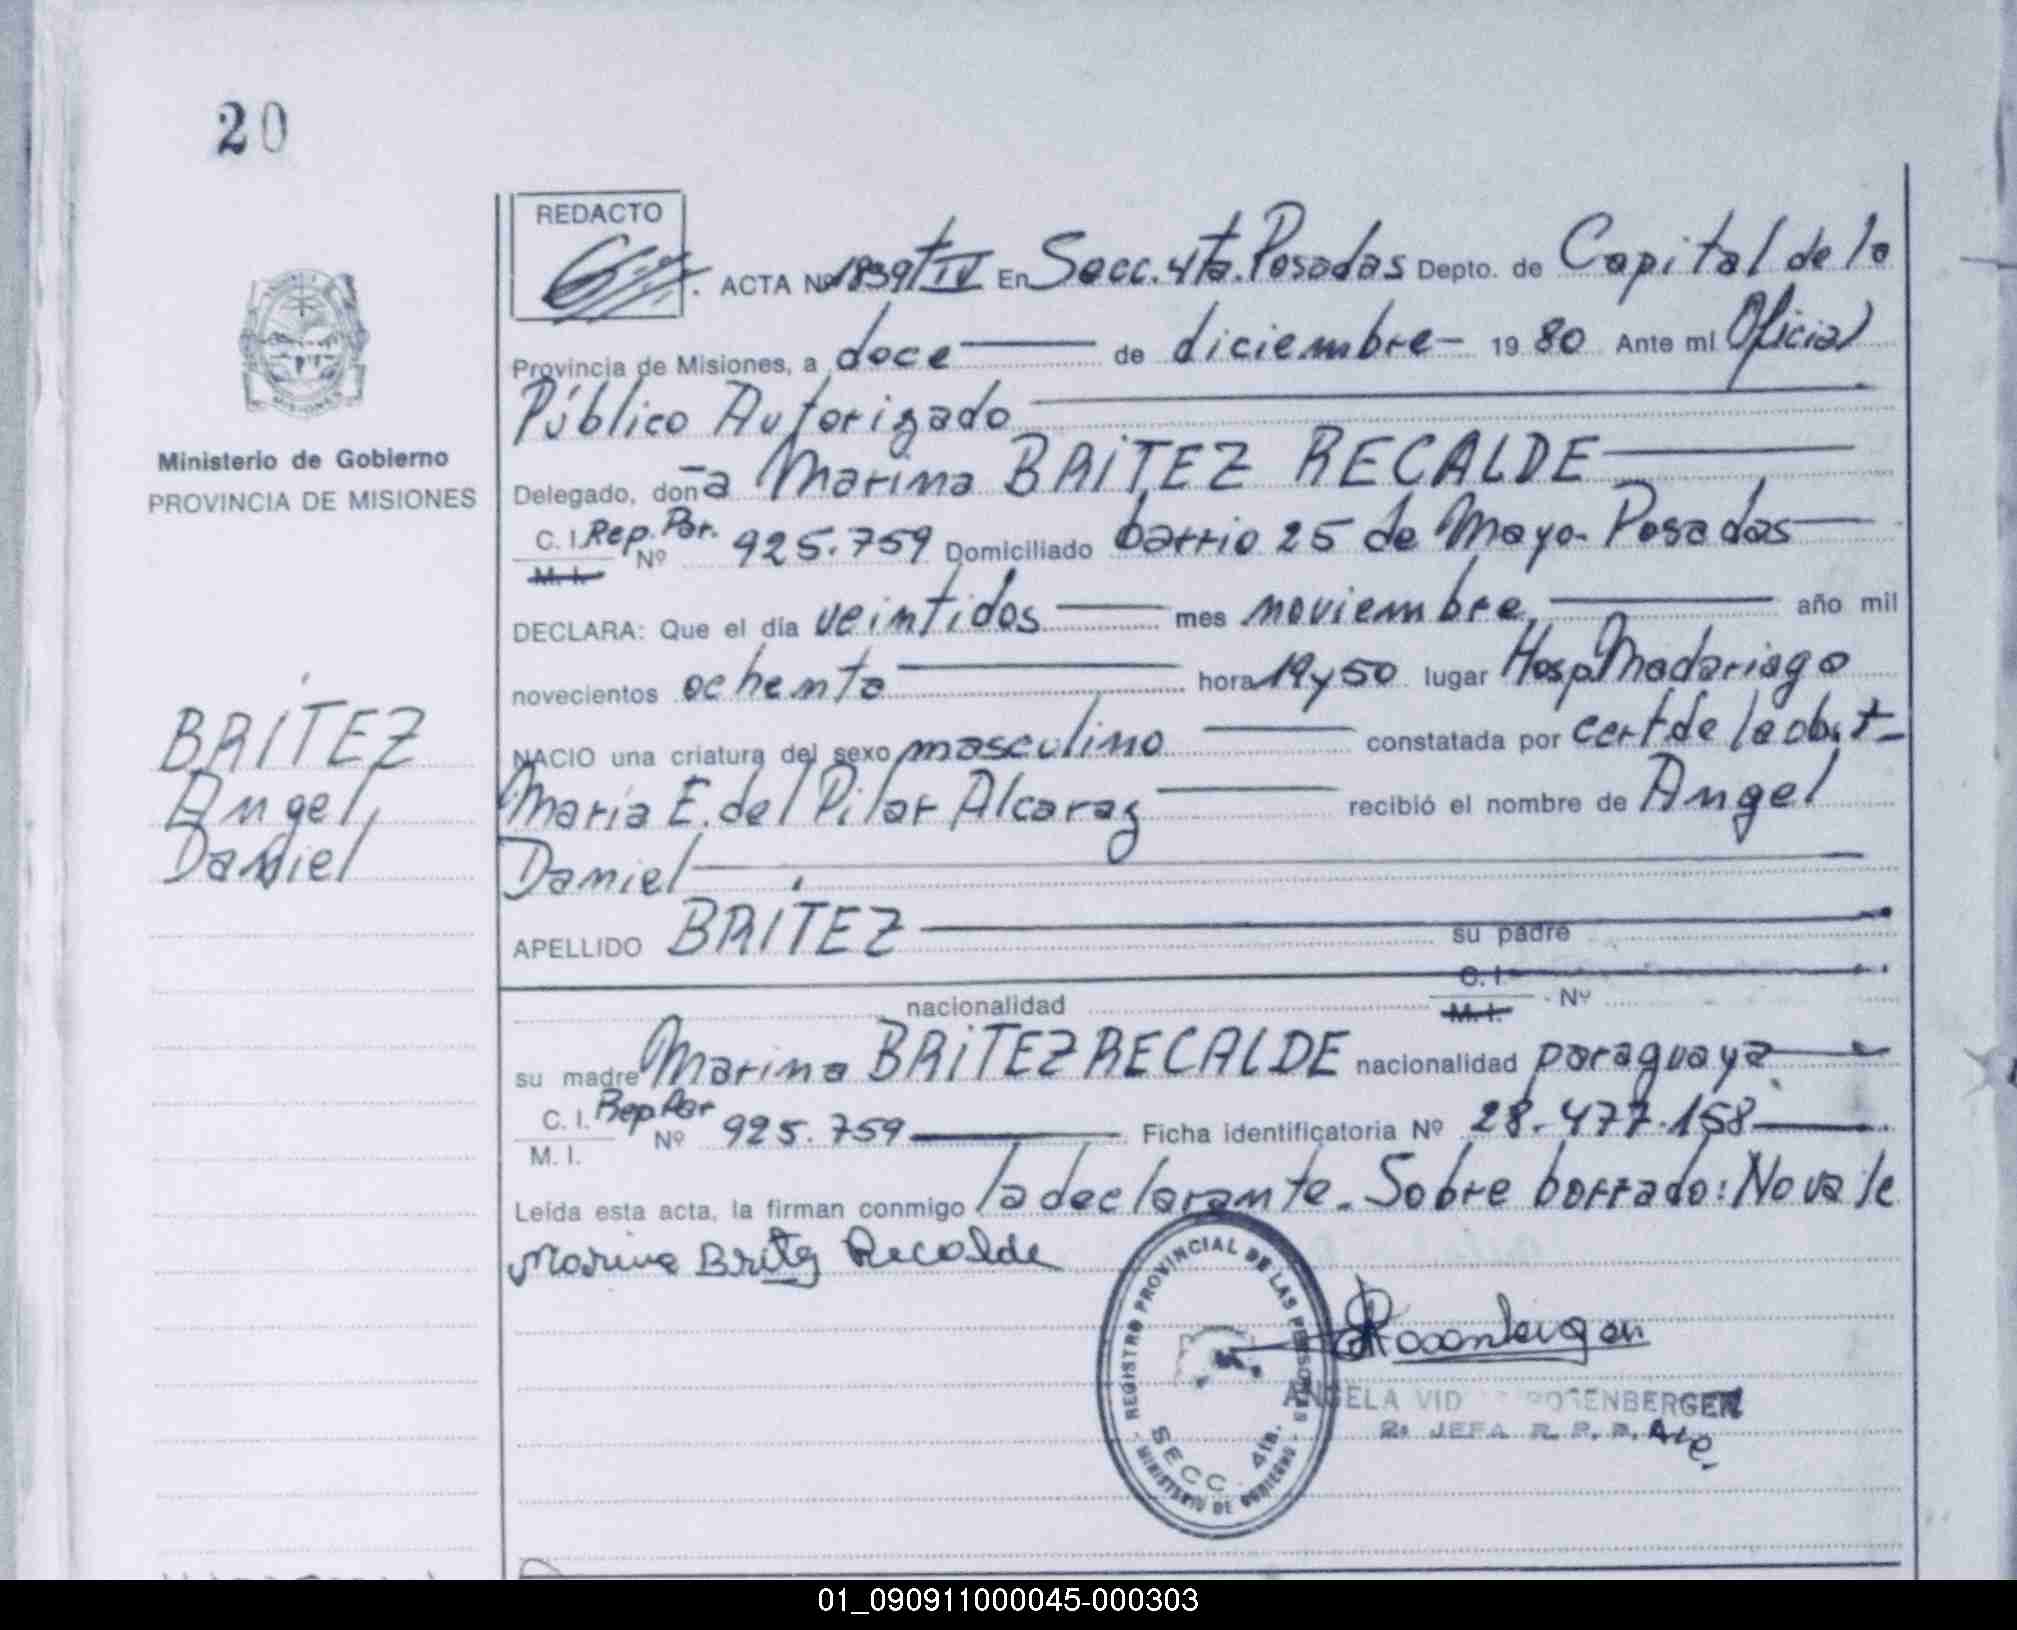 20
REDACTO
ACTA Nº 1839 t IV En Secc. 4ta. Posadas Depto. de Capital de la
Provincia de Misiones, a doce de diciembre 1980 Ante mí Oficial
Público Autorizado
Ministerio de Gobierno
PROVINCIA DE MISIONES
Delegado, doña Marina BRiTEZ RECALDE
C. I. Rep. Par. Nº 925.759 Domiciliado barrio 25 de Mayo. Posadas
M. I.
DECLARA: Que el día veintidos mes noviembre, año mil
novecientos ochenta hora 19 y 50 lugar Hosp. Madariaga
BRÍTEZ
Angel
Daniel
NACIO una criatura del sexo masculino constatada por cert de la obst-
María E. del Pilar Alcaraz recibió el nombre de Angel
Daniel
APELLIDO BRÍTEZ su padre
nacionalidad C. I. M. I. Nº
su madre Marina BRiTEZ RECALDE nacionalidad paraguaya
C. I. Rep Par Nº 925.759 Ficha identificatoria Nº 28.477.158
M. I.
Leída esta acta, la firman conmigo la declarante. Sobre borrado: No vale
Marina Britez Recalde
REGISTRO PROVINCIAL DE LAS PERSONAS
SECC. 4ta.
MINISTERIO DE GOBIERNO
ANGELA VID ROSENBERGER
2a JEFA R. P. P. Acc.
01_090911000045-000303